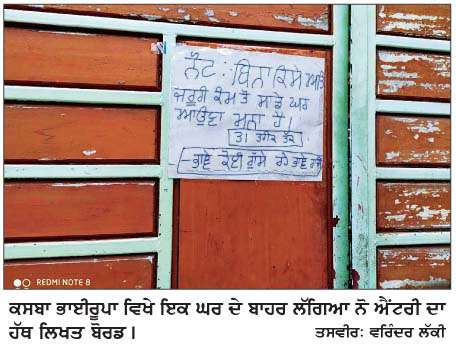 ਨੋਟ : ਬਿਨਾ ਕਿਸੇ ਅਤਿ
ਜਰੂਰੀ ਕੰਮ ਤੋਂ ਸਾਡੇ ਘਰ
ਆਉਣਾ ਮਨਾ ਹੈ।
31 ਤਰੀਕ ਤੱਕ
ਭਾਵੇਂ ਕੋਈ ਗੁੱਸੇ ਰਹੇ ਭਾਵੇਂ ਰਾਜੀ
REDMI NOTE 8
ਕਸਬਾ ਭਾਈਰੂਪਾ ਵਿਖੇ ਇਕ ਘਰ ਦੇ ਬਾਹਰ ਲੱਗਿਆ ਨੋ ਐਂਟਰੀ ਦਾ
ਹੱਥ ਲਿਖਤ ਬੋਰਡ।
ਤਸਵੀਰ: ਵਰਿੰਦਰ ਲੱਕੀ